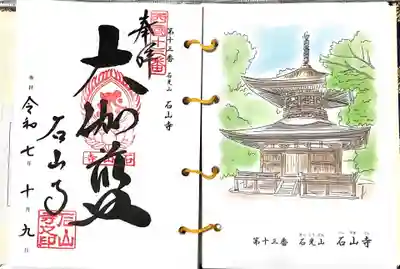 西國十三番
奉拝
第十三番 石光山 石山寺
大伽藍
石山寺
令和七年十月九日
石山寺之印
第十三番 石光山 石山寺